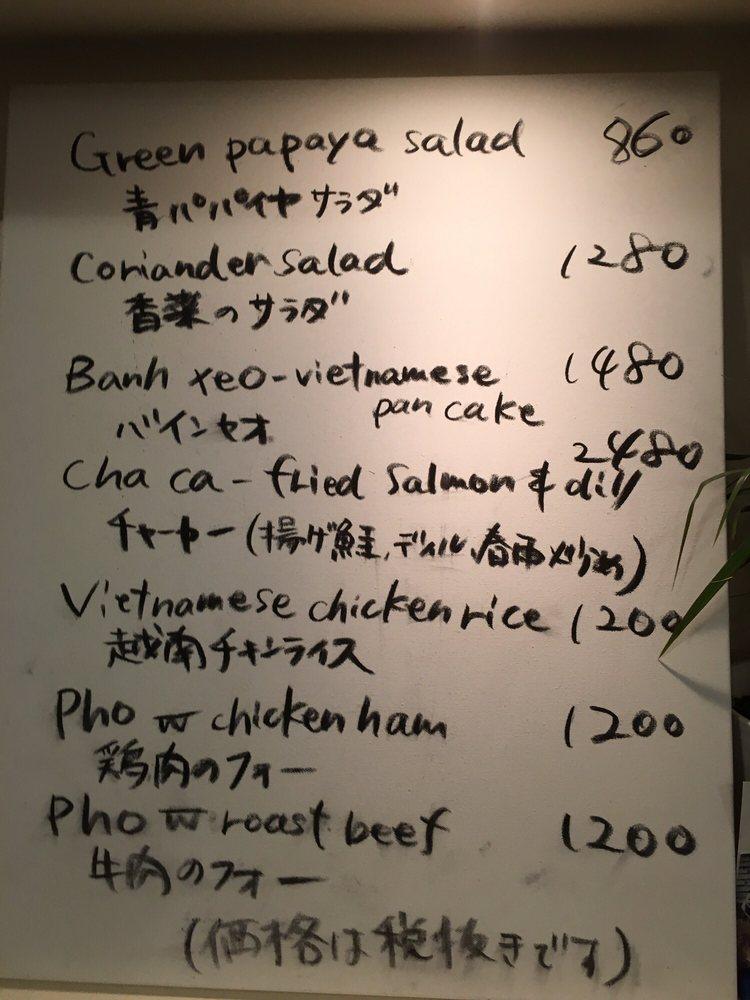 Green papaya salad 860
青パパイヤサラダ
Coriander salad 1280
香菜のサラダ
Banh xeo - vietnamese 1480
pan cake
バインセオ
2480
Cha ca - fried salmon & dill
チャーカー(揚げ鮭、ディル、春雨
Vietnamese chicken rice 1200
越南チキンライス
Pho w chicken ham 1200
鶏肉のフォー
Pho w roast beef 1200
牛肉のフォー
(価格は税抜きです)